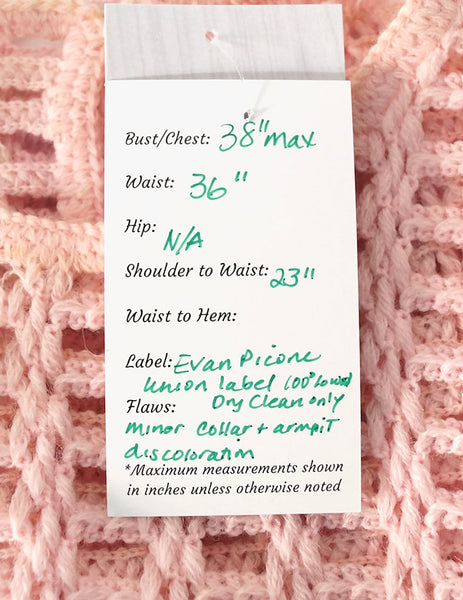 Bust/Chest: 38" max
Waist: 36"
Hip: N/A
Shoulder to Waist: 23"
Waist to Hem:
Label: Evan Picone
union label 100%
Flaws: Dry Clean only
minor collar + armpit
discoloration
*Maximum measurements shown
in inches unless otherwise noted